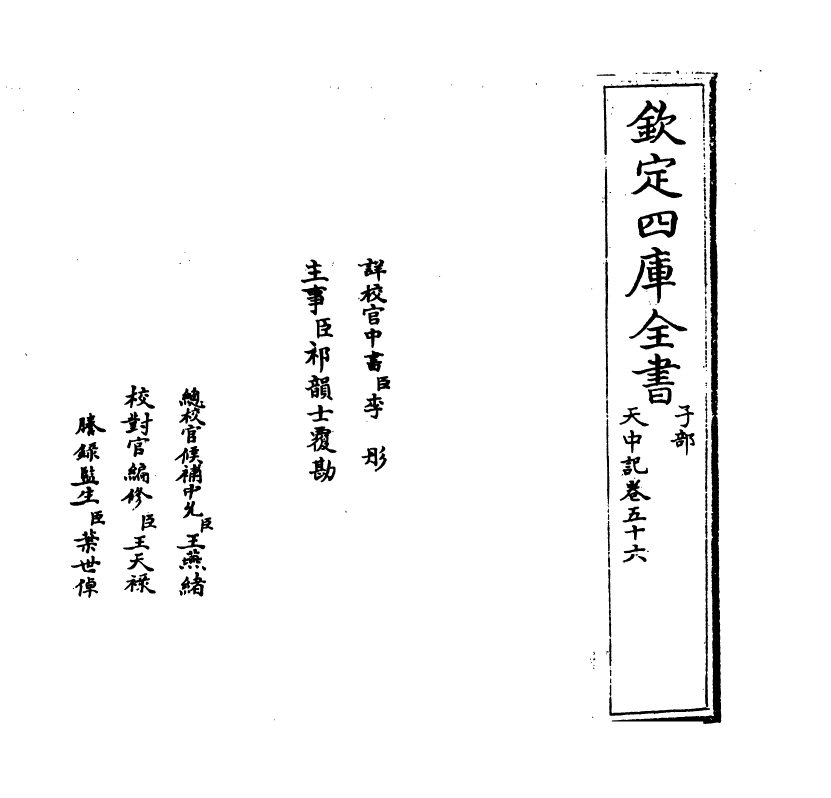 欽定四庫全書
子部
天中記卷五十六
詳校官中書臣李彤
主事臣祁韻士覆勘
總校官候補中允臣王燕緒
校對官編修臣王天祿
謄錄監生臣葉世倬